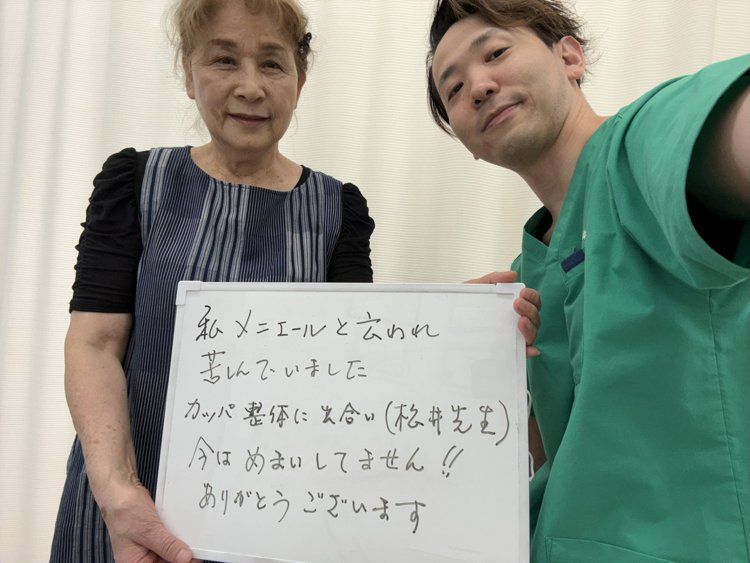 私メニエールと云われ
苦しんでいました
カッパ整体に出合い(松井先生)
今はめまいしてません!!
ありがとうございます